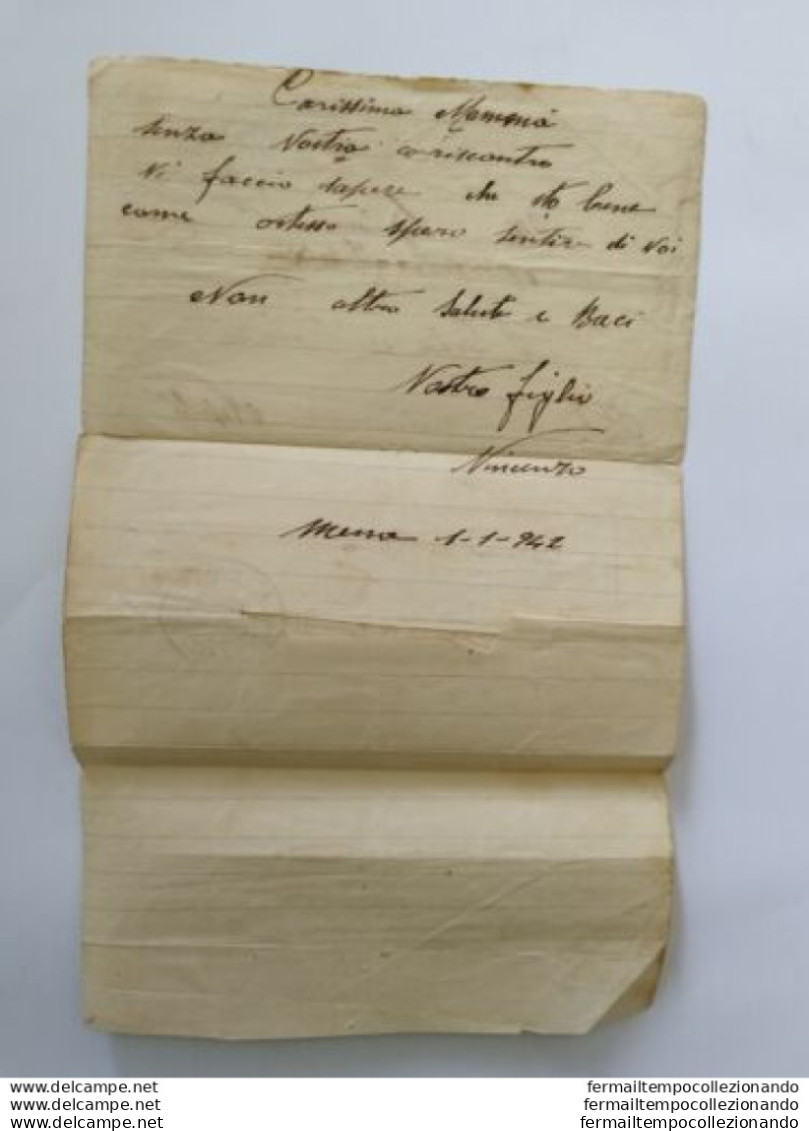 Carissima Mammà
senza Vostro coriscontro
Vi faccio sapere che sto bene
come ostesso spero sentire di Voi
Non altro Saluti e Baci
Vostro figlio
Vincenzo
1-1-942
www.delcampe.net
www.delcampe.net
www.delcampe.net
fermailtempocollezionando
fermailtempocollezionando
fermailtempocollezionando